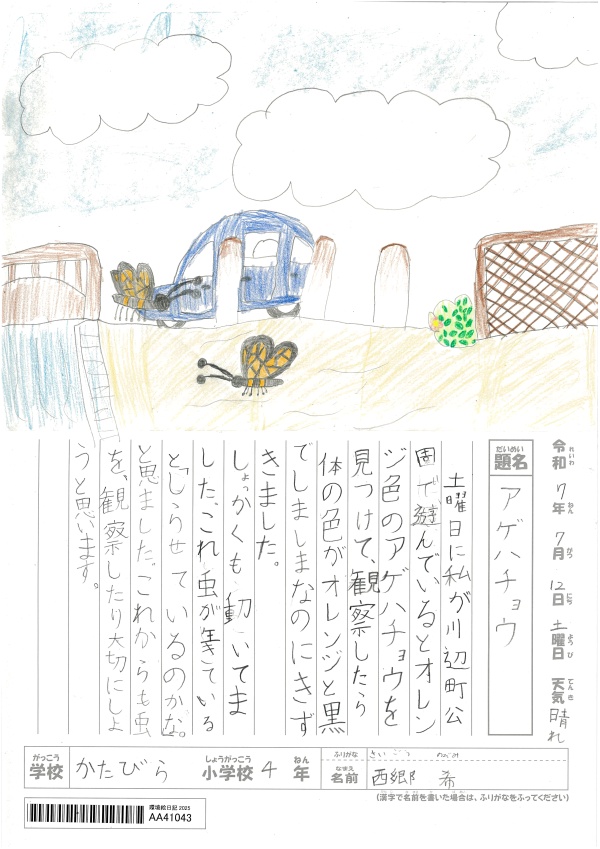 令和7年7月12日土曜日 天気晴れ
れいわ ねん がつ にち ようび てんき
だいめい
題名 アゲハチョウ
土曜日に私が川辺町公
園で、遊んでいるとオレン
ジ色のアゲハチョウを
見つけて、観察したら
体の色がオレンジと黒
でしましまなのにきず
きました。
しょっかくも動いてま
した。これ虫が生きている
と「しらせているのかな。
と思ました。これからも虫
を、観察したり大切にしよ
うと思います。
がっこう しょうがっこう ねん
学校 かたびら 小学校 4年
ふりがな さいごう のぞみ
なまえ
名前 西郷 希
(漢字で名前を書いた場合は、ふりがなをふってください)
環境絵日記 2025
AA41043